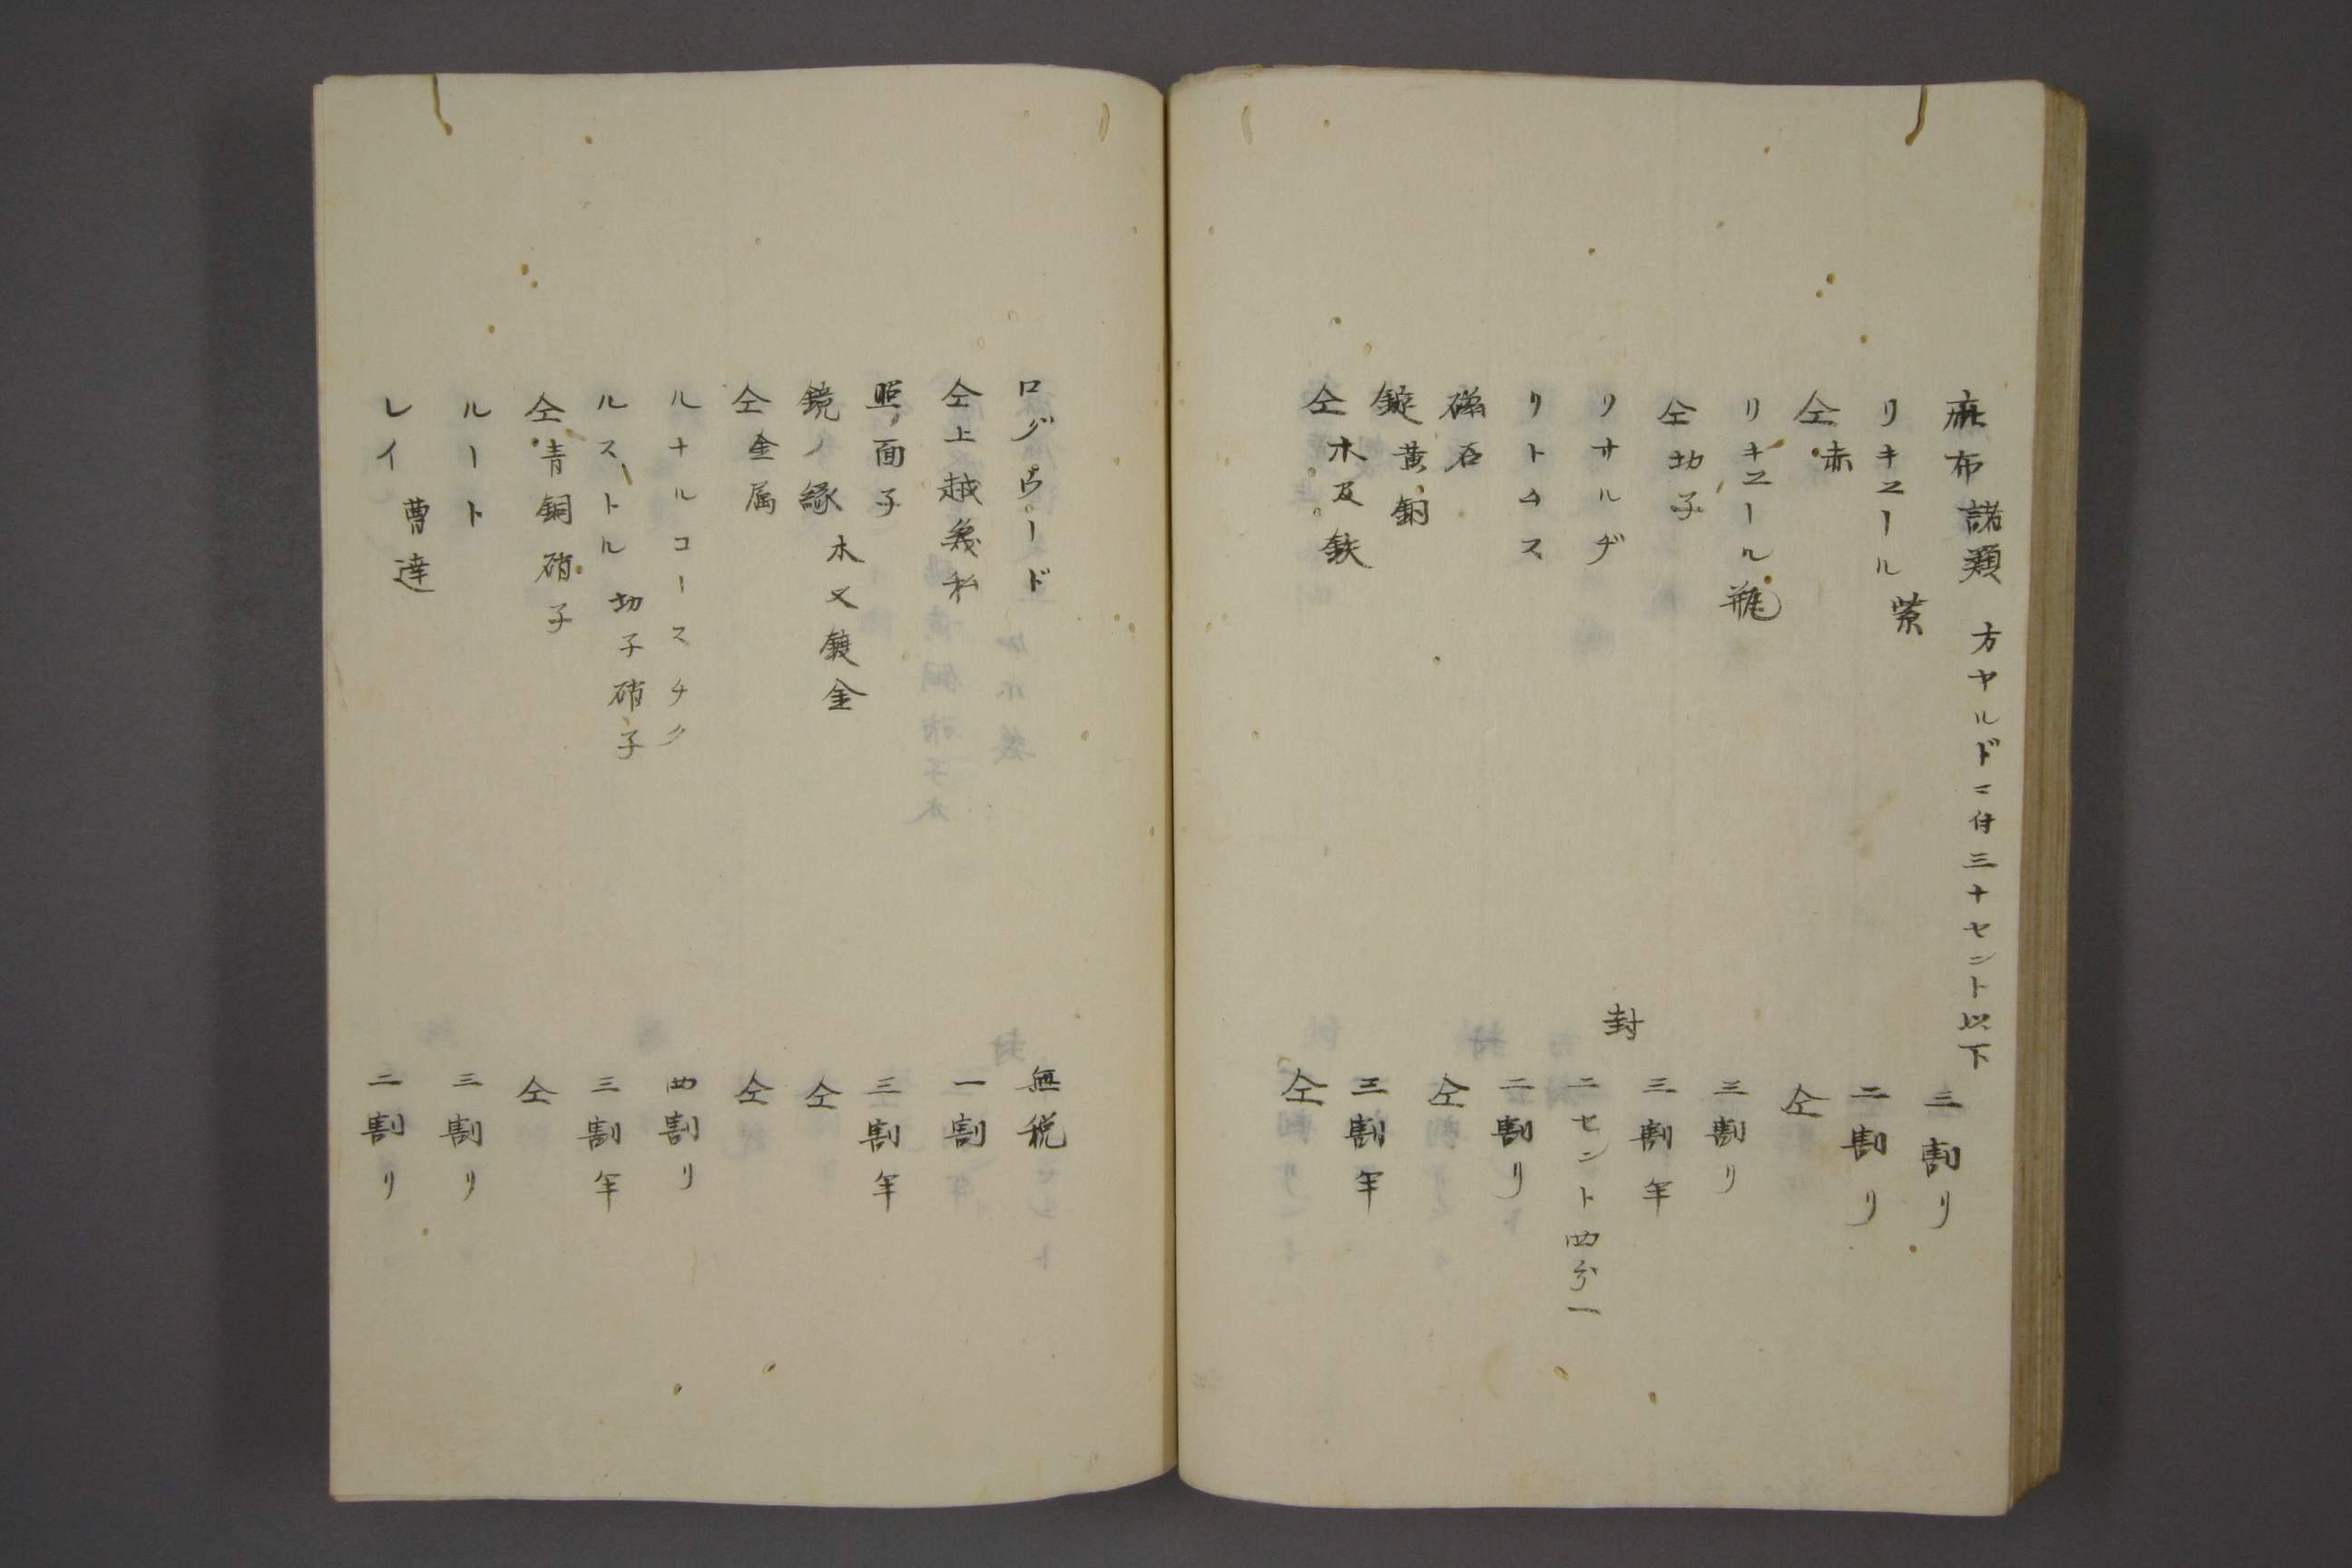 麻布諸類 方ヤルドニ付三十セント以下 三割リ
リキヱール 紫 二割リ
仝 赤 仝
リキヱール瓶 三割リ
仝 切子 三割半
リサルヂ 封 二セント四分一
リトムス 二割リ
磁石 仝
錠 黄銅 三割半
仝 木及鉄 仝
ログウード 無税
仝上越幾私 一割
照面子 三割半
鏡ノ縁 木又鍍金 仝
仝 金属 仝
ルナルコースチク 四割リ
ルストル 切子硝子 三割半
仝 青銅硝子 仝
ルート 三割リ
レイ 曹達 二割リ